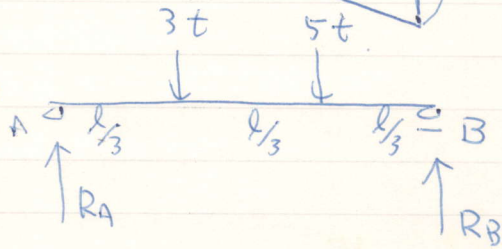 3t 5t
A ℓ/3 ℓ/3 ℓ/3 B
RA RB